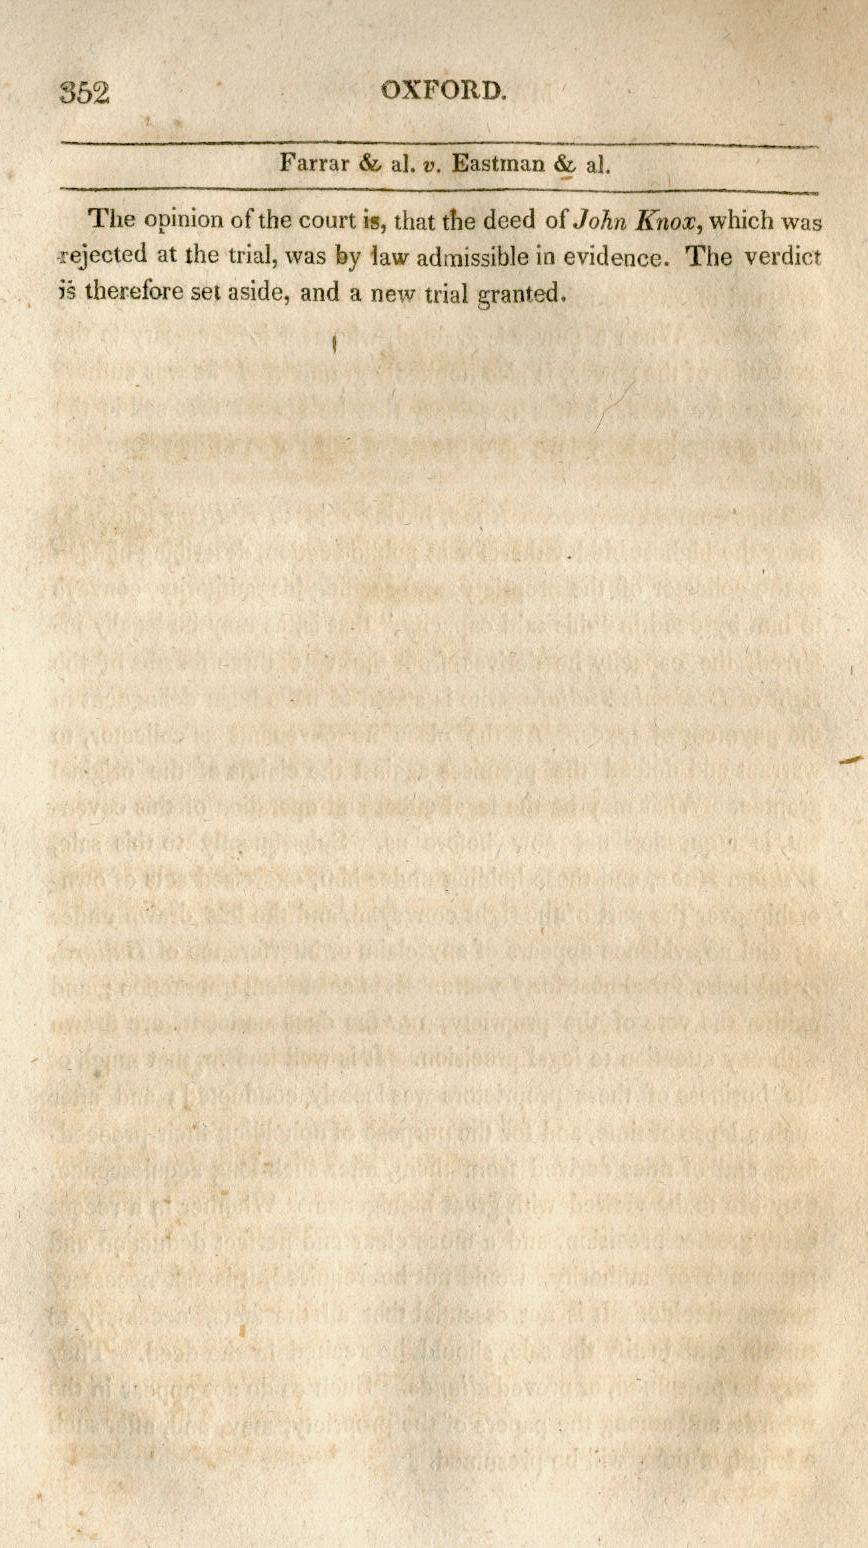 352 OXFORD.
Farrar & al. v. Eastman & al.
The opinion of the court is, that the deed of John Knox, which was
rejected at the trial, was by law admissible in evidence. The verdict
is therefore set aside, and a new trial granted.